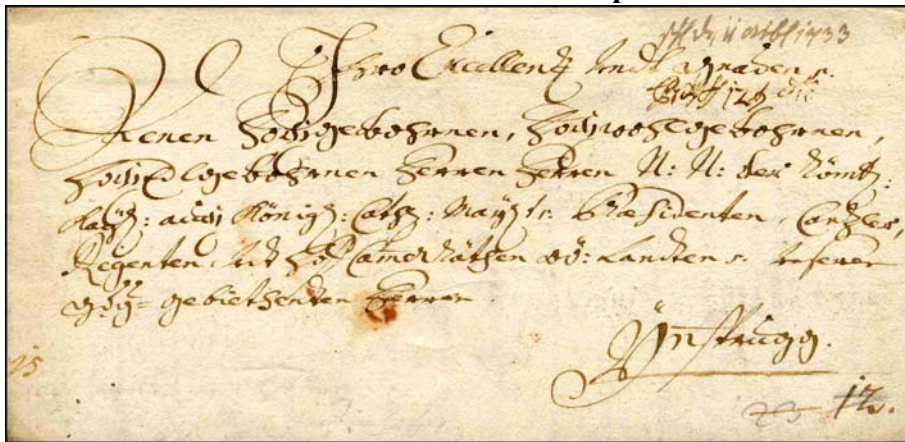 1733
Ihro Excellentz undt Gnaden
Denen Hochgebohrnen, Hochwohlgebohrnen,
HochEdlgebohrnen Herren Herren N: N: der Röm:
Kay: auch Königl: Cath: May: Præsidenten, Cantzler,
Regenten, und Hof Camer Räthen oö: Landten unseren
gebiethenden Herren
Ynsprugg.
12.